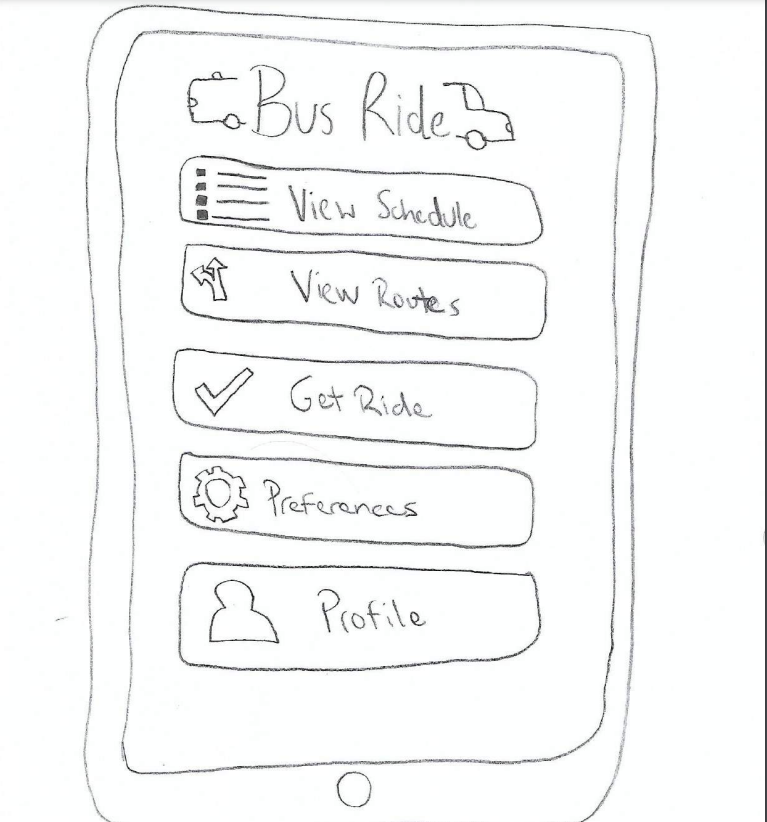 Bus Ride
View Schedule
View Routes
Get Ride
Preferences
Profile